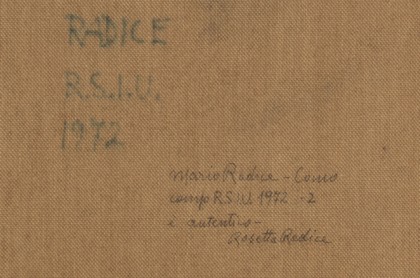 RADICE
R.S.I.U.
1972
Mario Radice - Como
comp R.S.I.U. 1972 - 2
è autentico -
Rosetta Radice